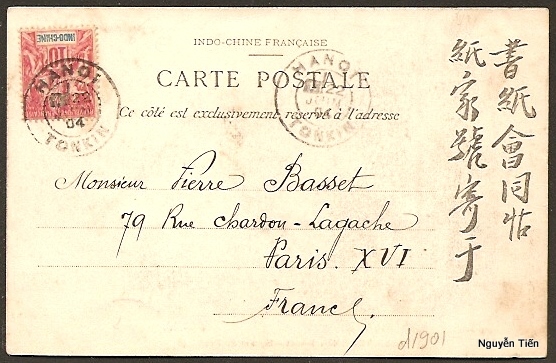 INDO-CHINE
10
HANOI
22
04
TONKIN
INDO-CHINE FRANÇAISE
CARTE POSTALE
Ce côté est exclusivement réservé à l'adresse
HANOI
22
JUIN
04
TONKIN
Monsieur Pierre Basset
79 Rue Chardon-Lagache
Paris. XVI
France
紙會同
紙家號寄于
d1901
Nguyễn Tiến